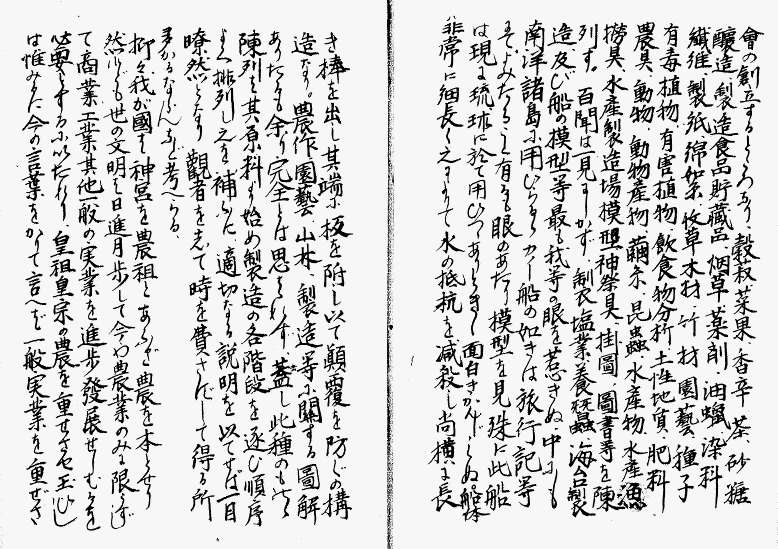 會の創立するところなり、穀菽菜果、香辛、茶、砂糖
釀造、製造食品、貯藏品、烟草、薬剤、油蠟、染料
纖維、製紙、綿、絲、牧草、木材、竹材、園藝、種子
有毒植物、有害植物、飲食物分析、土性地質、肥料
農具、動物、動物産物、繭糸、昆蟲、水産物、水産漁
撈具、水産製造場模型、神祭具、掛圖、圖書等を陳
列す。百聞は一見にしかず、製塩業、養蠶、海苔製
造及び船の模型等最も我等の眼を惹きぬ中にも
南洋諸島に用ひらるゝカノー船の如きは旅行記等
にてよみたること有るも眼のあたり模型を見殊に此船
は現に琉球に於て用ひつゝありときく面白きかんじしぬ船体
非常に細長く之によりて水の抵抗を減殺し尚横に長
き棒を出し其端に板を附し以て顛覆を防ぐの構
造なり。農作、園藝、山林、製造等に關する圖解
ありたるも余り完全とは思はれず、蓋し此種のものは
陳列を其原料より始め製造の各階段を逐ひ順序
よく排列し之を補ふに適切なる説明を以てせば一目
瞭然となり觀者をして時を費さずして得る所
多からしむならんと考へらる。
抑々我が國は神宮を農祖とあふぎ農を本とせり
然れども世の文明は日進月歩して今や農業のみに限らず
て商業工業其他一般の実業を進歩發展せしむるを
必要とするに以たれり、皇祖皇宗の農を重ぜさせ玉ひし
は惟みるに今の言葉をかりて言へば一般実業を重ぜさ